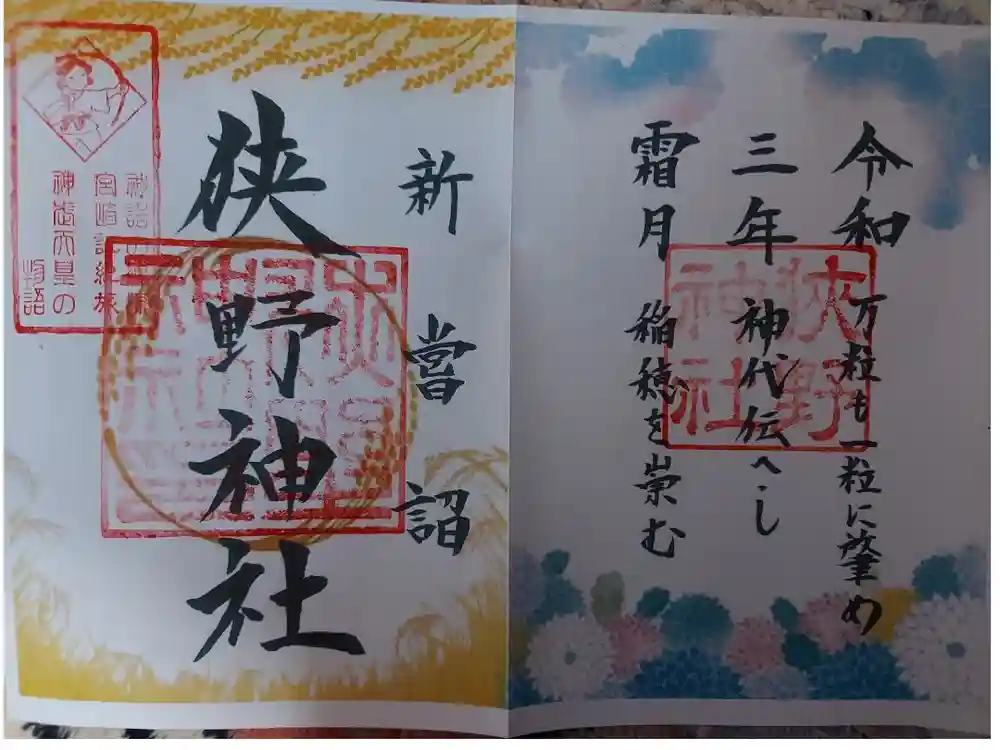 令和 万粒も一粒に肇め
三年 神代伝へし
霜月 稲穂を崇む
狭野
神社
新嘗詣
狭野神社
神話の
宮崎記紀旅
神武天皇の
物語